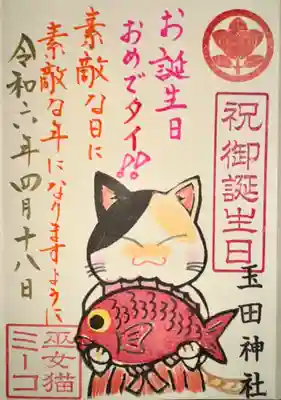 祝御誕生日
玉田神社
お誕生日
おめでタイ!!
素敵な日に
素敵な年になりますように
令和六年四月十八日
巫女猫
ミーコ